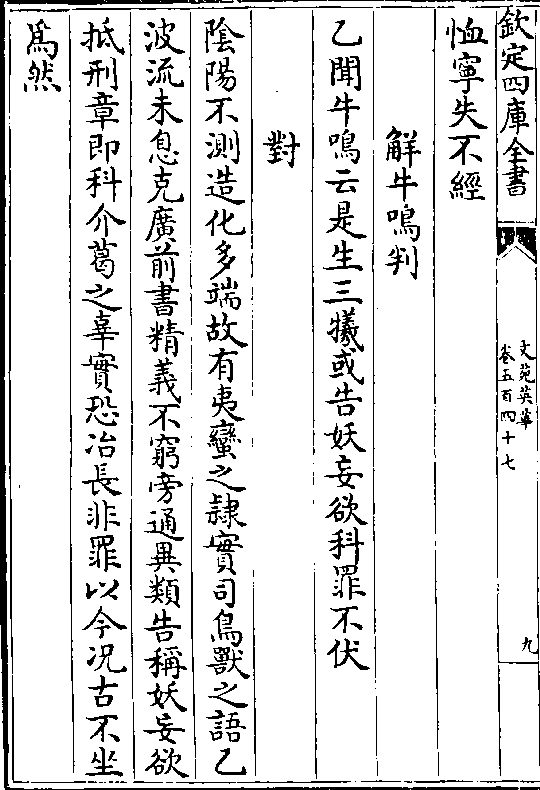 欽定四庫全書
文苑英華
卷五百四十七
九
恤寧失不經
解牛鳴判
乙聞牛鳴云是生三犧或告妖妄欲科罪不伏
對
陰陽不測造化多端故有夷蠻之隷實司鳥獸之語乙
波流未息克廣前書精義不窮旁通異類告稱妖妄欲
抵刑章即科介葛之辜實恐冶長非罪以今况古不坐
爲然